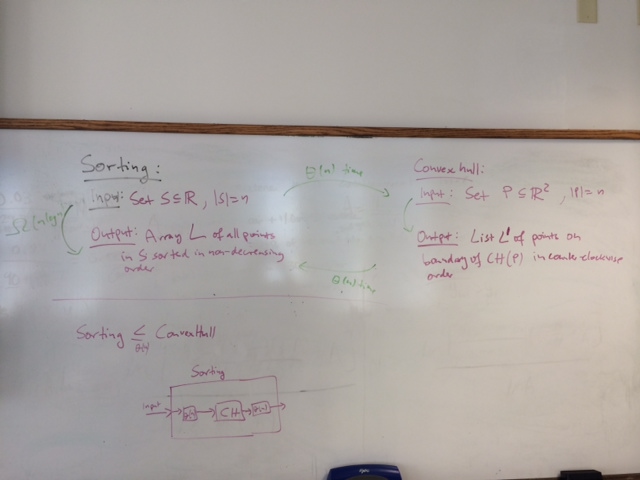 Sorting:
Input: Set S ⊆ ℝ, |S|=n
Output: Array L of all points
in S sorted in non-decreasing
order
Ω(nlogn)
Θ(n) time
Θ(n) time
Convex hull:
Input: Set P ⊆ ℝ², |P|=n
Output: List L' of points on
boundary of CH(P) in counter-clockwise
order
Sorting ≤Θ(n) Convex Hull
Sorting
input
Θ(n)
CH
Θ(n)